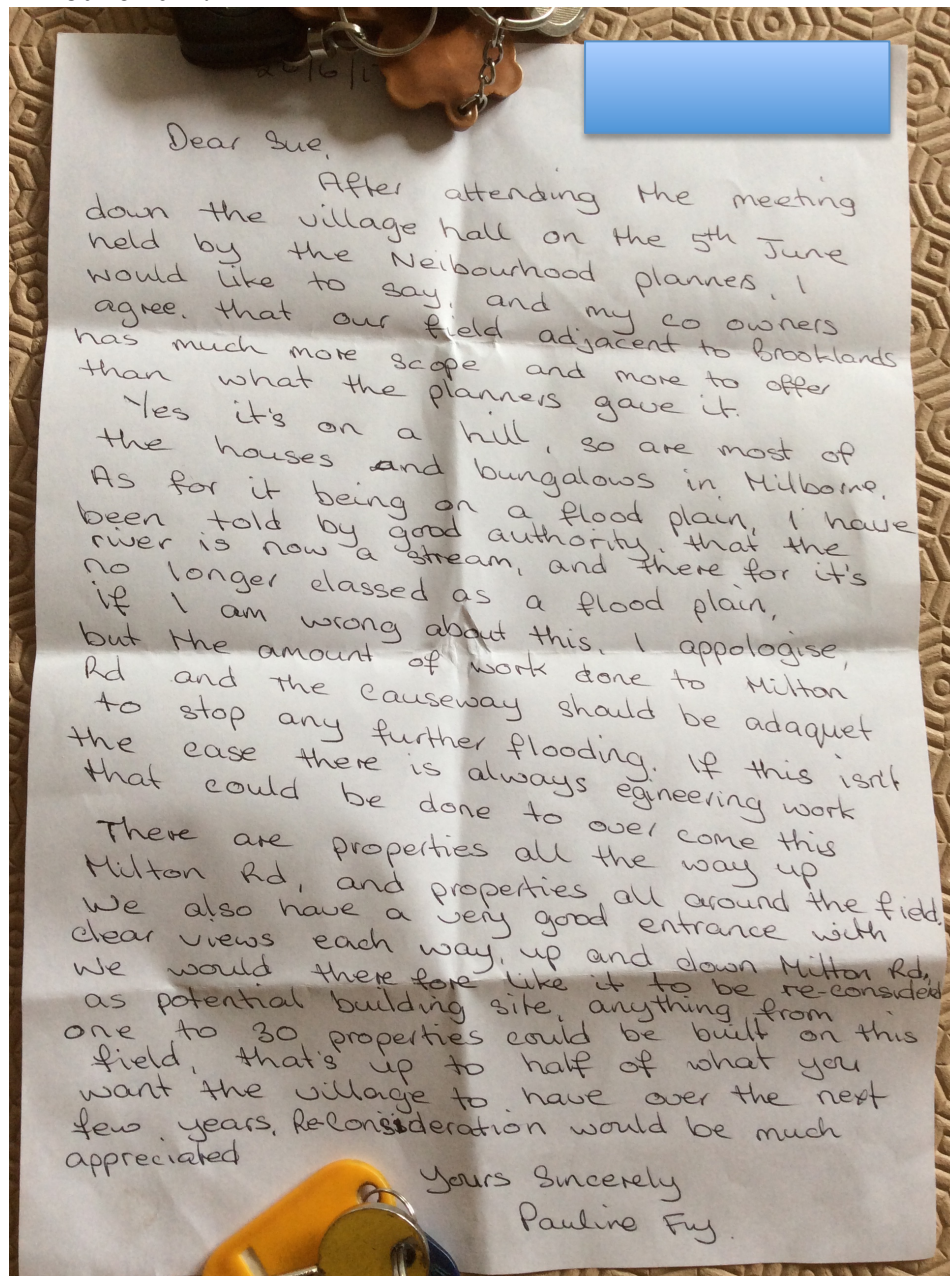 26/6/1
Dear Sue,
After attending the meeting
down the village hall on the 5th June
held by the Neibourhood planners, I
would like to say, and my co owners
agree, that our field adjacent to Brooklands
has much more scope and more to offer
than what the planners gave it.
Yes it's on a hill, so are most of
the houses and bungalows in Milborne.
As for it being on a flood plain, I have
been told by good authority, that the
river is now a stream, and there for it's
no longer classed as a flood plain,
if I am wrong about this, I appologise,
but the amount of work done to Milton
Rd and the causeway should be adaquet
to stop any further flooding. If this isn't
the case there is always egineering work
that could be done to over come this
There are properties all the way up
Milton Rd, and properties all around the field.
We also have a very good entrance with
clear views each way, up and down Milton Rd,
We would there fore like it to be re-considerd
as potential building site, anything from
one to 30 properties could be built on this
field, that's up to half of what you
want the village to have over the next
few years. Re-Consideration would be much
appreciated
Yours Sincerely
Pauline